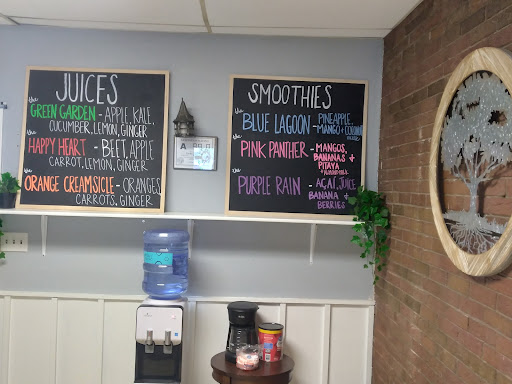 JUICES
the
GREEN GARDEN - APPLE, KALE,
CUCUMBER, LEMON, GINGER
the
HAPPY HEART - BEET, APPLE
CARROT, LEMON, GINGER
the
ORANGE CREAMSICLE - ORANGES
CARROTS, GINGER
SMOOTHIES
the
BLUE LAGOON - PINEAPPLE,
- MANGO + COCONUT
the
PINK PANTHER - MANGOS,
BANANAS +
PITAYA
the
PURPLE RAIN - AÇAÍ, JUICE
BANANA +
BERRIES
A